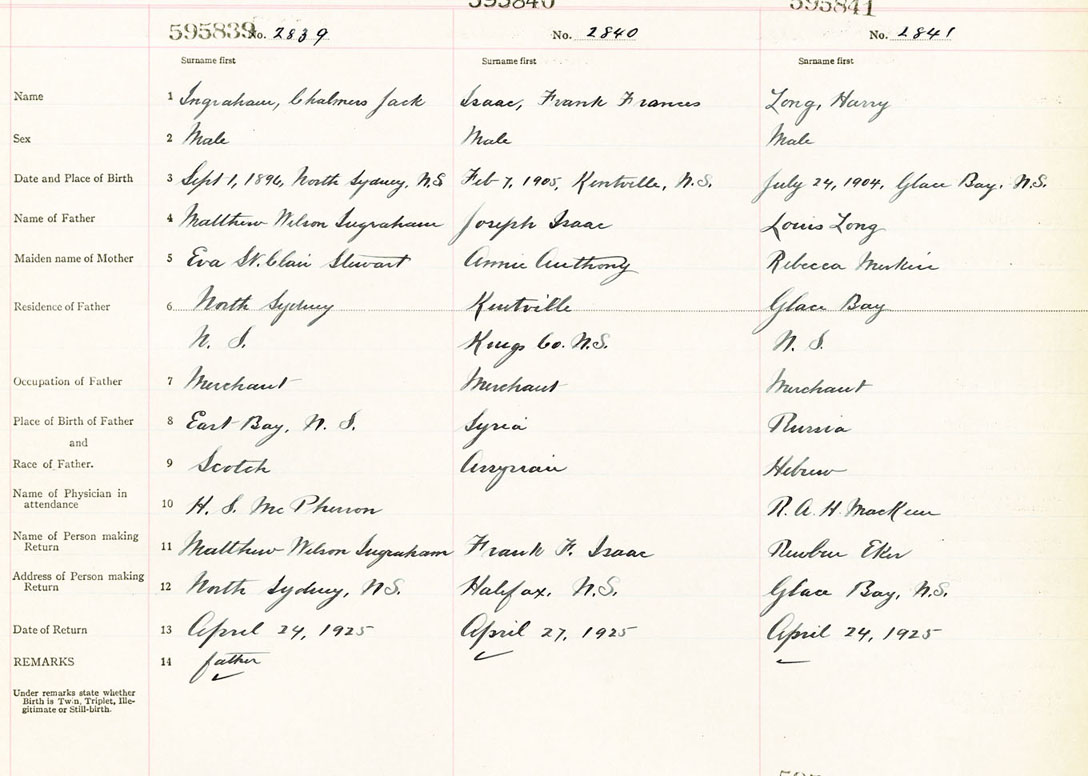 595840 595841
595839 No. 2839 No. 2840 No. 2841
Surname first Surname first Surname first
Name 1 Ingraham, Chalmers Jack Isaac, Frank Frances Long, Harry
Sex 2 Male Male Male
Date and Place of Birth 3 Sept 1, 1896, North Sydney, N.S Feb 7, 1905, Kentville, N.S. July 24, 1904, Glace Bay, N.S.
Name of Father 4 Matthew Wilson Ingraham Joseph Isaac Louis Long
Maiden name of Mother 5 Eva St. Clair Stewart Annie Anthony Rebecca
Residence of Father 6 North Sydney Kentville Glace Bay
N. S. Kings Co. N.S. N. S.
Occupation of Father 7 Merchant Merchant Merchant
Place of Birth of Father 8 East Bay, N. S. Syria Russia
and
Race of Father. 9 Scotch Assyrian Hebrew
Name of Physician in
attendance 10 H. S. McPherson R. A. H. MacKeen
Name of Person making
Return 11 Matthew Wilson Ingraham Frank F. Isaac Reuben Eker
Address of Person making
Return 12 North Sydney, N.S. Halifax, N.S. Glace Bay, N.S.
Date of Return 13 April 24, 1925 April 27, 1925 April 24, 1925
REMARKS 14 father
Under remarks state whether
Birth is Twin, Triplet, Ille-
gitimate or Still-birth.